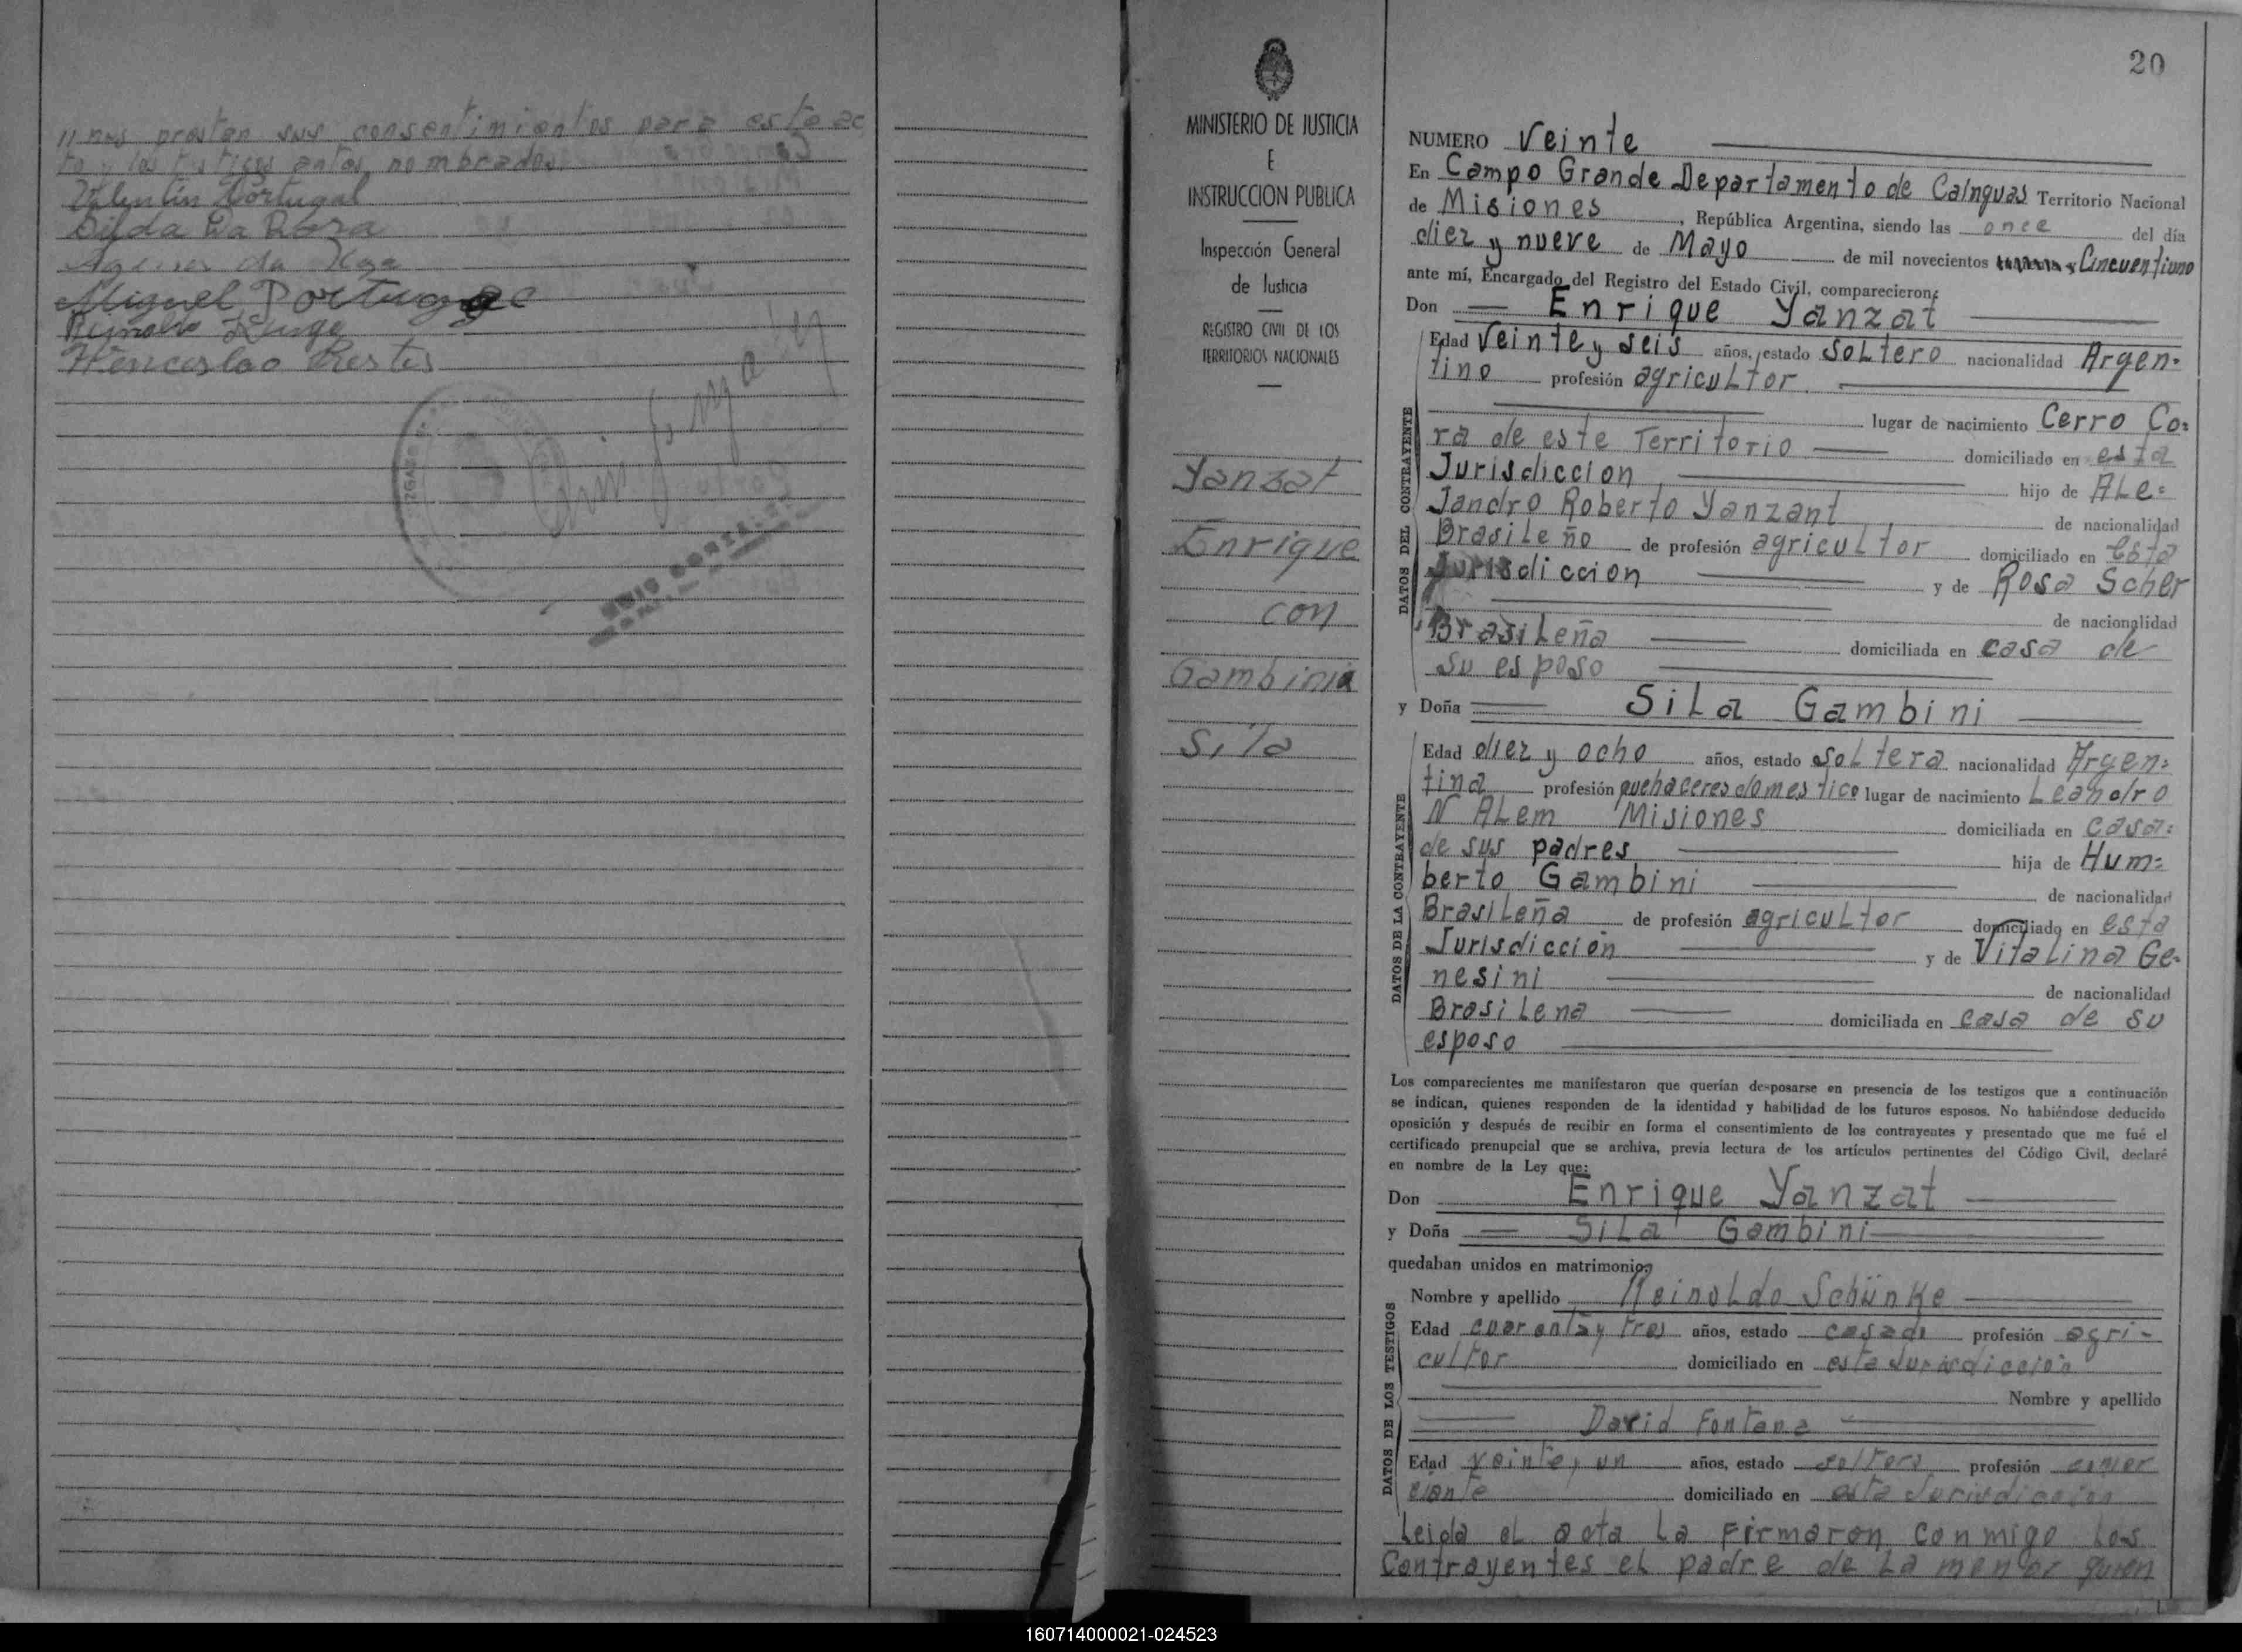 nos prestan sus consentimientos para este ac
to y los testigos antes nombrados.
Valentin Portugal
Miguel Portugal
Wenceslao Prestes
20
MINISTERIO DE JUSTICIA
E
INSTRUCCION PUBLICA
Inspección General
de Justicia
REGISTRO CIVIL DE LOS
TERRITORIOS NACIONALES
Yanzat
Enrique
con
Gambini
Sila
NUMERO Veinte
En Campo Grande Departamento de Cainguas Territorio Nacional
de Misiones, República Argentina, siendo las once del día
diez y nueve de Mayo de mil novecientos y Cincuentiuno
ante mí, Encargado del Registro del Estado Civil, comparecieron:
Don Enrique Yanzat
DATOS DEL CONTRAYENTE
Edad Veinte y seis años, estado soLtero nacionalidad Argen=
tino profesión agricuLtor
lugar de nacimiento Cerro Co=
ra de este Territorio domiciliado en esta
Jurisdiccion hijo de ALe=
Jandro Roberto Yanzant de nacionalidad
BrasiLeño de profesión agricuLtor domiciliado en esta
Jurisdiccion y de Rosa Scher
de nacionalidad
BrasiLeña domiciliada en casa de
su esposo
y Doña SiLa Gambini
DATOS DE LA CONTRAYENTE
Edad diez y ocho años, estado soLtera nacionalidad Argen=
tina profesión quehaceres domestico lugar de nacimiento Leandro
N ALem Misiones domiciliada en casa=
de sus padres hija de Hum=
berto Gambini de nacionalidad
BrasiLeña de profesión agricuLtor domiciliado en esta
Jurisdicción y de VitaLina Ge=
nesini de nacionalidad
BrasiLena domiciliada en casa de su
esposo
Los comparecientes me manifestaron que querían desposarse en presencia de los testigos que a continuación
se indican, quienes responden de la identidad y habilidad de los futuros esposos. No habiéndose deducido
oposición y después de recibir en forma el consentimiento de los contrayentes y presentado que me fué el
certificado prenupcial que se archiva, previa lectura de los artículos pertinentes del Código Civil, declaré
en nombre de la Ley que:
Don Enrique Yanzat
y Doña SiLa Gambini
quedaban unidos en matrimonio;
DATOS DE LOS TESTIGOS
Nombre y apellido ReinoLdo Schünke
Edad cuarenta y tres años, estado casado profesión agri-
cultor domiciliado en esta Jurisdiccion
Nombre y apellido
David Fontana
Edad veinte y un años, estado soltero profesión comer
ciante domiciliado en esta Jurisdiccion
Leida eL acta La firmaron conmigo Los
Contrayentes eL padre de La menor quien
160714000021-024523